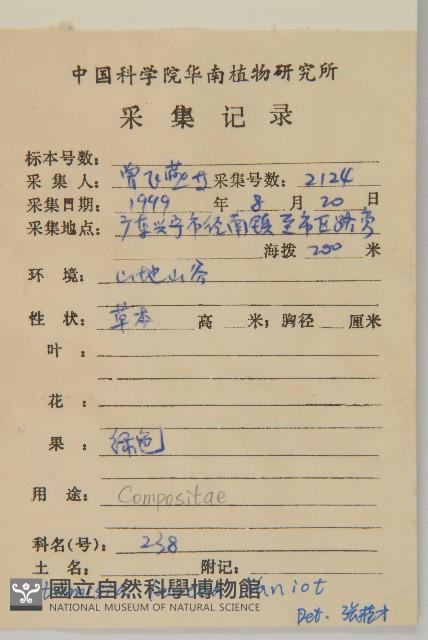 中国科学院华南植物研究所
采集记录
标本号数:
采集人: 曾飞燕 采集号数: 2124
采集日期: 1999 年 8 月 20 日
采集地点: 广东兴宁市径南镇至市区路旁
海拔 200 米
环境: 山地山谷
性状: 草本 高 米; 胸径 厘米
叶:
花:
果: 绿色
用途: Compositae
科名(号): 238
土名: 附记:
國立自然科學博物館
NATIONAL MUSEUM OF NATURAL SCIENCE
Vaniot
Det. 张桂才